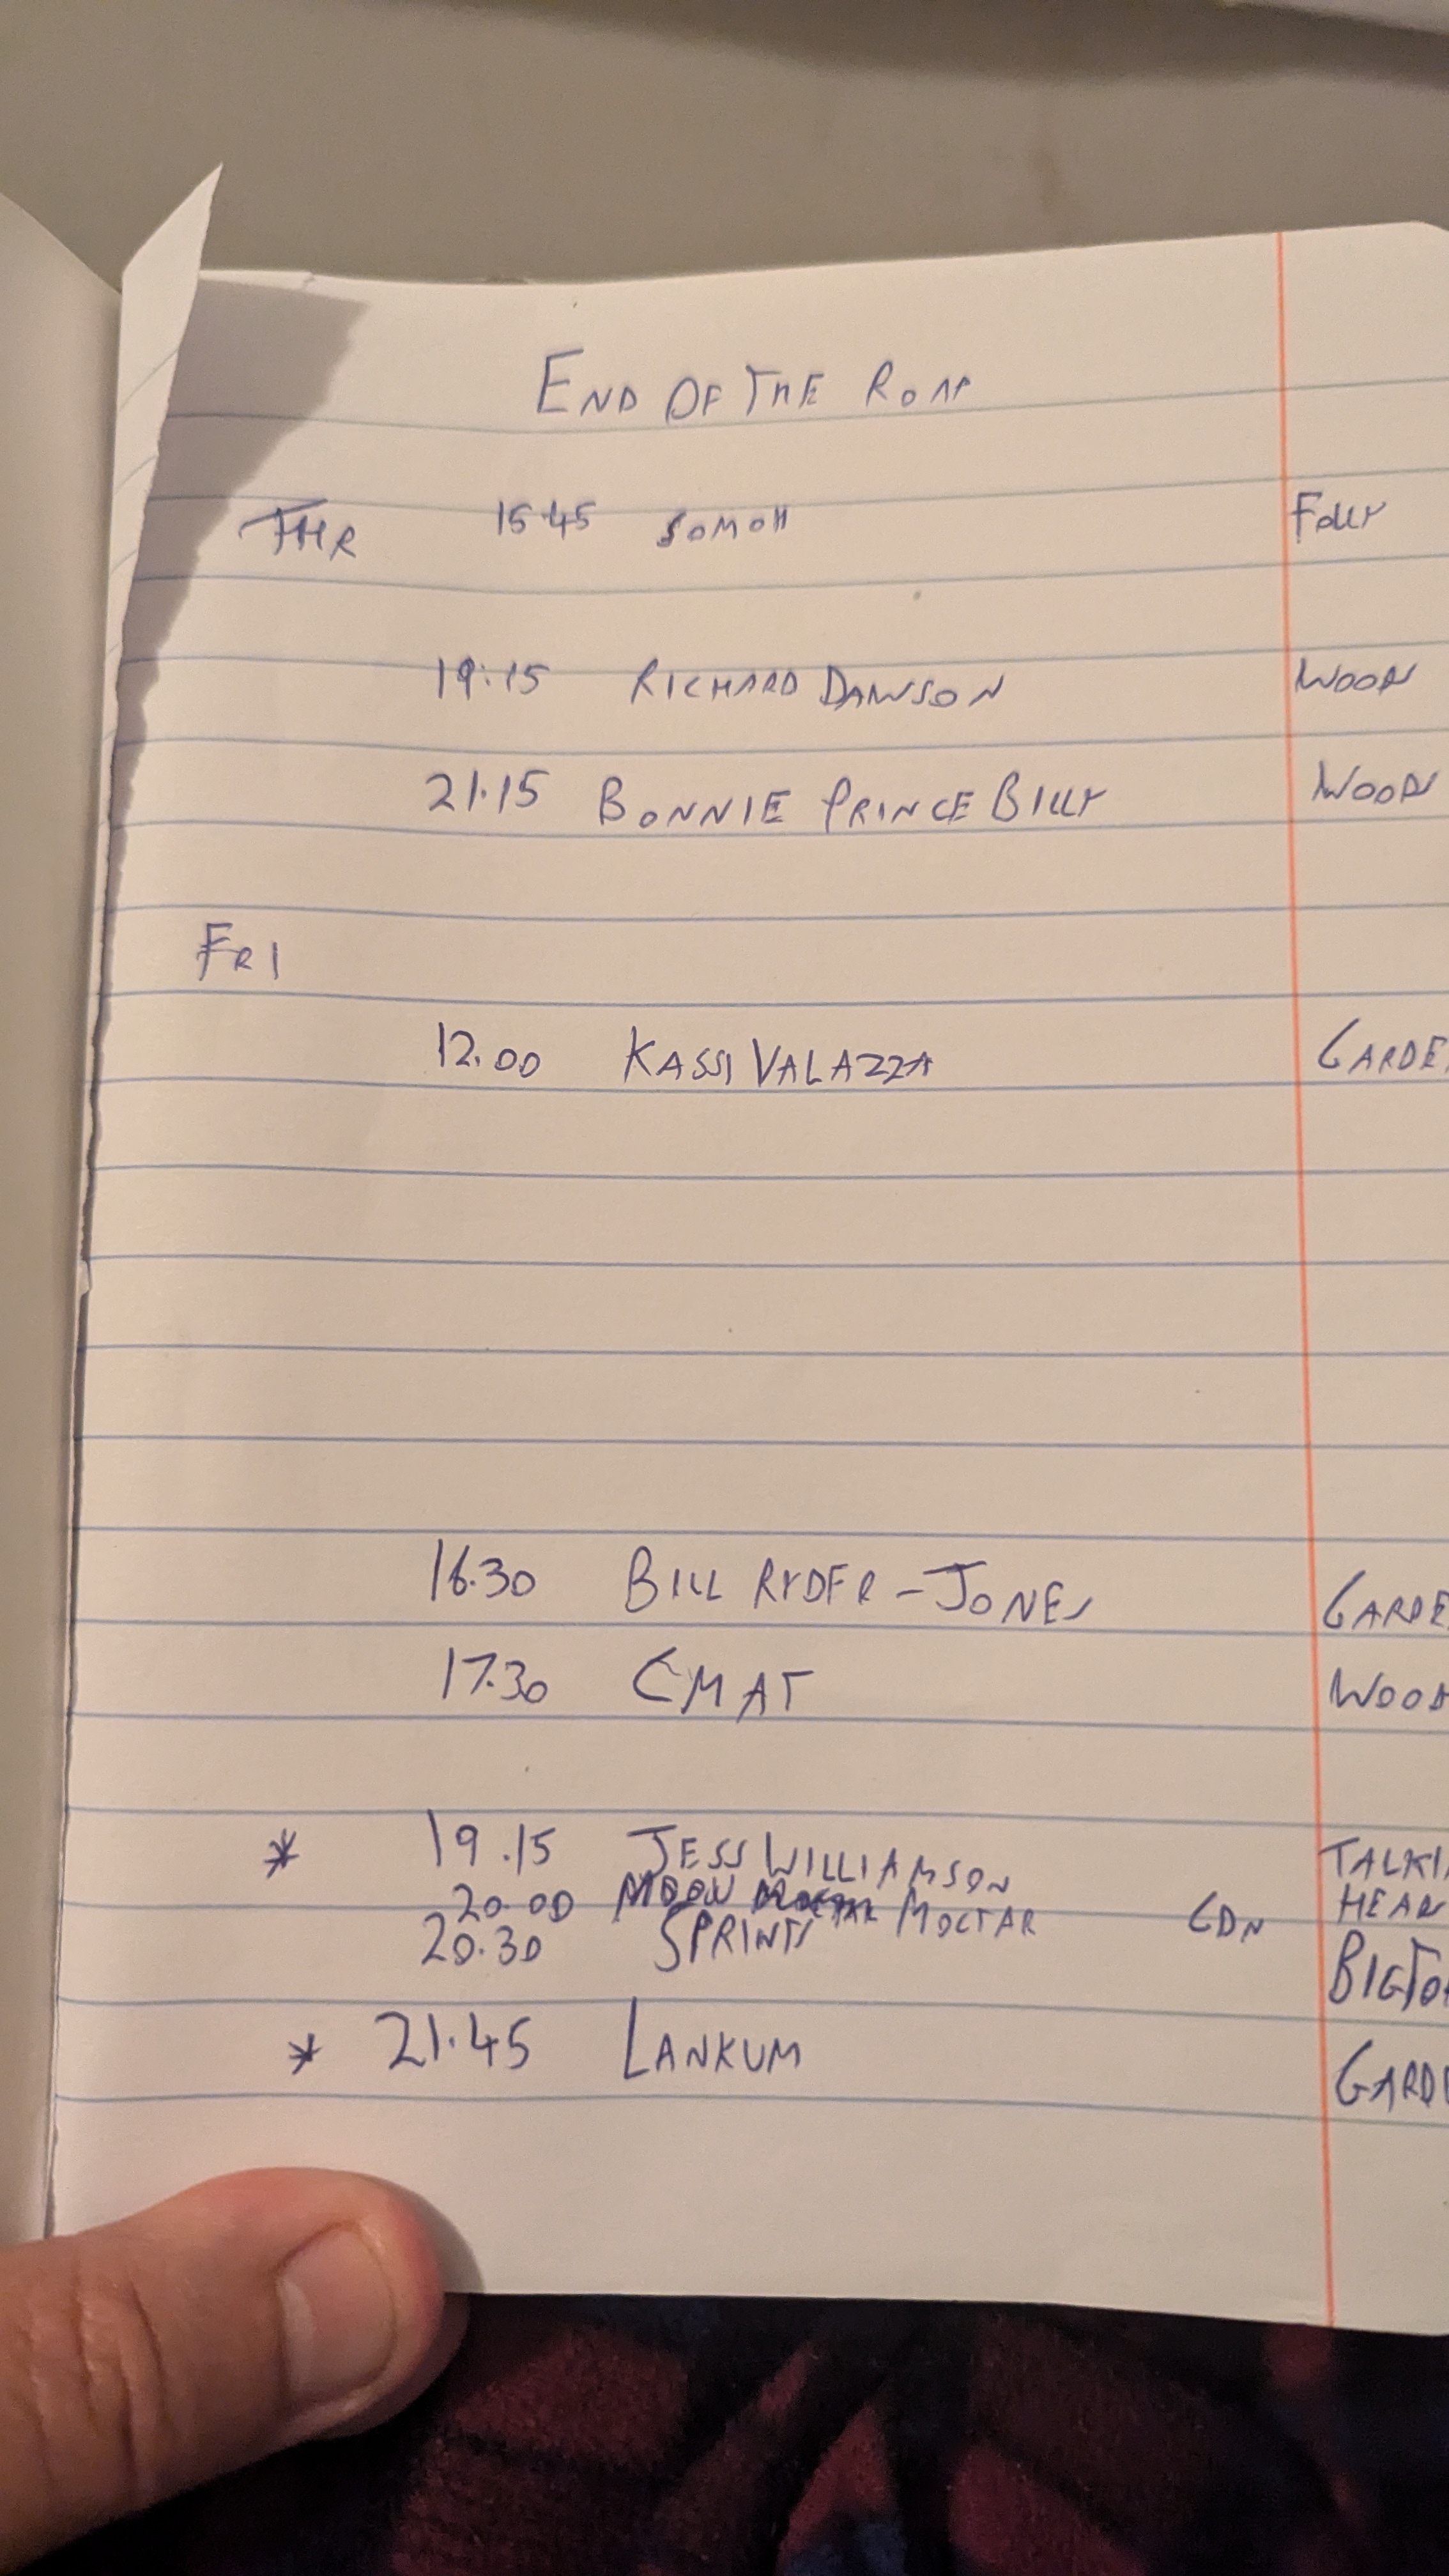 END OF THE ROAD
THR 15.45 SOMOH FOLLY
19:15 RICHARD DAWSON WOODS
21.15 BONNIE PRINCE BILLY WOODS
FRI
12.00 KASSI VALAZZA GARDE
16.30 BILL RYDER-JONES GARDE
17.30 CMAT WOOD
* 19.15 JESS WILLIAMSON TALKI
20.00 MDOU MOCTAR GDN HEAD
20.30 SPRINTS BIGTO
* 21.45 LANKUM GARDE